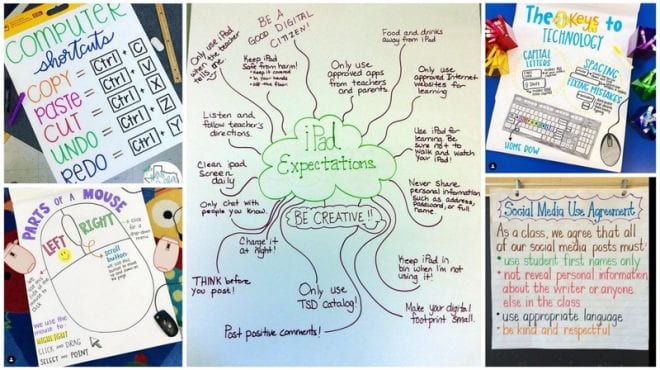 COMPUTER
shortcuts
COPY = Ctrl + C
PASTE = Ctrl + V
CUT = Ctrl + X
UNDO = Ctrl + Z
REDO = Ctrl + Y
PARTS OF A MOUSE
LEFT
RIGHT
Scroll
button
We use the
mouse to
HIGHLIGHT
CLICK AND DRAG
SELECT AND POINT
iPad
Expectations
BE CREATIVE!!
BE A
GOOD DIGITAL
CITIZEN!
Only use iPad
when the teacher
tells me
Keep iPad
safe from harm!
• keep it covered
• in your hands
• off the floor
Only use
approved apps
from teachers
and parents
Food and drinks
away from iPad
Only use
approved Internet
websites for
learning
Listen and
follow teacher's
directions.
Use iPad for
learning. Be
sure not to
walk and watch
your iPad!
Clean ipad
screen
daily
Only chat with
people you know.
Never share
personal information
such as address,
password, or full
name.
Charge it
at night!
Keep iPad in
bin when I'm not
using it!
THINK before
you post!
Only use
TSD catalog!
Make your digital
footprint small.
Post positive comments!
The Keys to
TECHNOLOGY
CAPITAL
LETTERS
SPACING
FIXING MISTAKES
HOME ROW
Social Media Use Agreement
As a class, we agree that all
of our social media posts must:
• use student first names only
• not reveal personal information
about the writer or anyone
else in the class
• use appropriate language
• be kind and respectful